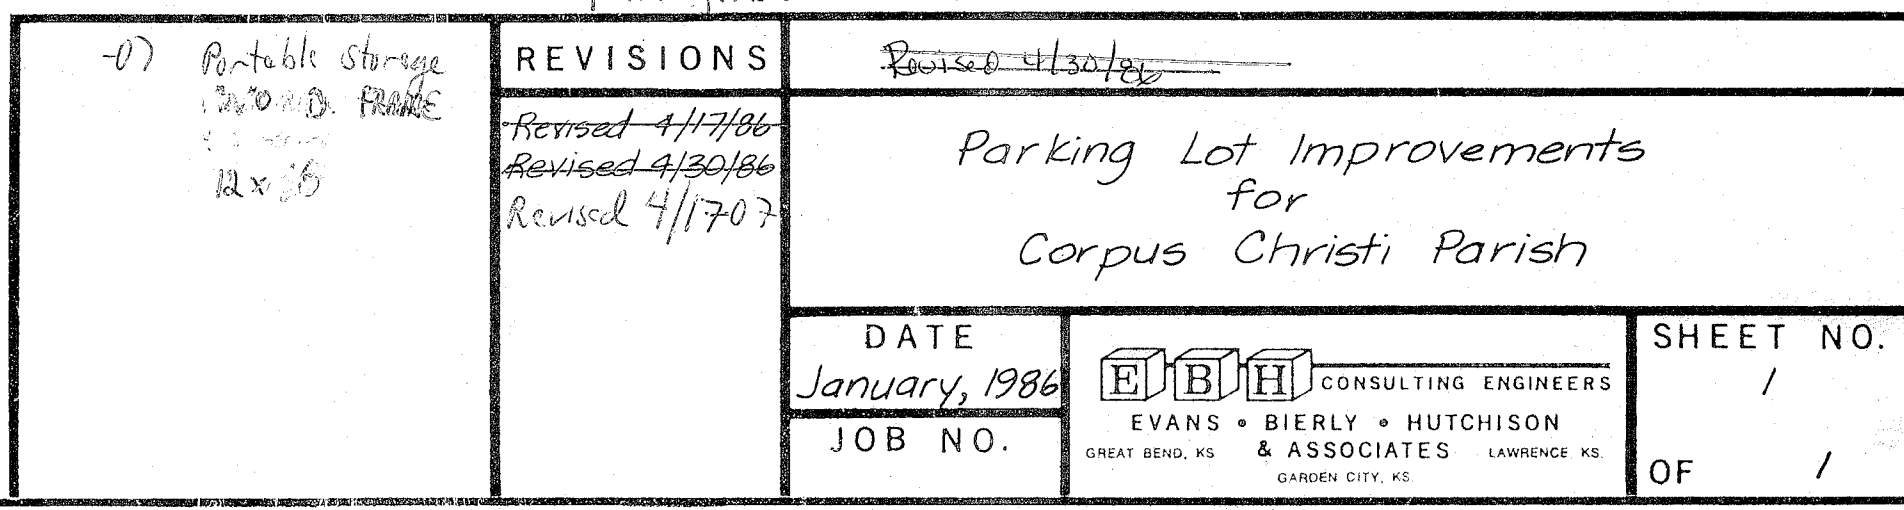 -07 Portable Storage
FRAME
12 x
REVISIONS
Revised 4/17/86
Revised 4/30/86
Revised 4/1707
Revised 4/30/86
Parking Lot Improvements
for
Corpus Christi Parish
DATE
January, 1986
JOB NO.
E B H CONSULTING ENGINEERS
EVANS • BIERLY • HUTCHISON
& ASSOCIATES
GREAT BEND, KS
LAWRENCE, KS.
GARDEN CITY, KS.
SHEET NO.
1
OF 1